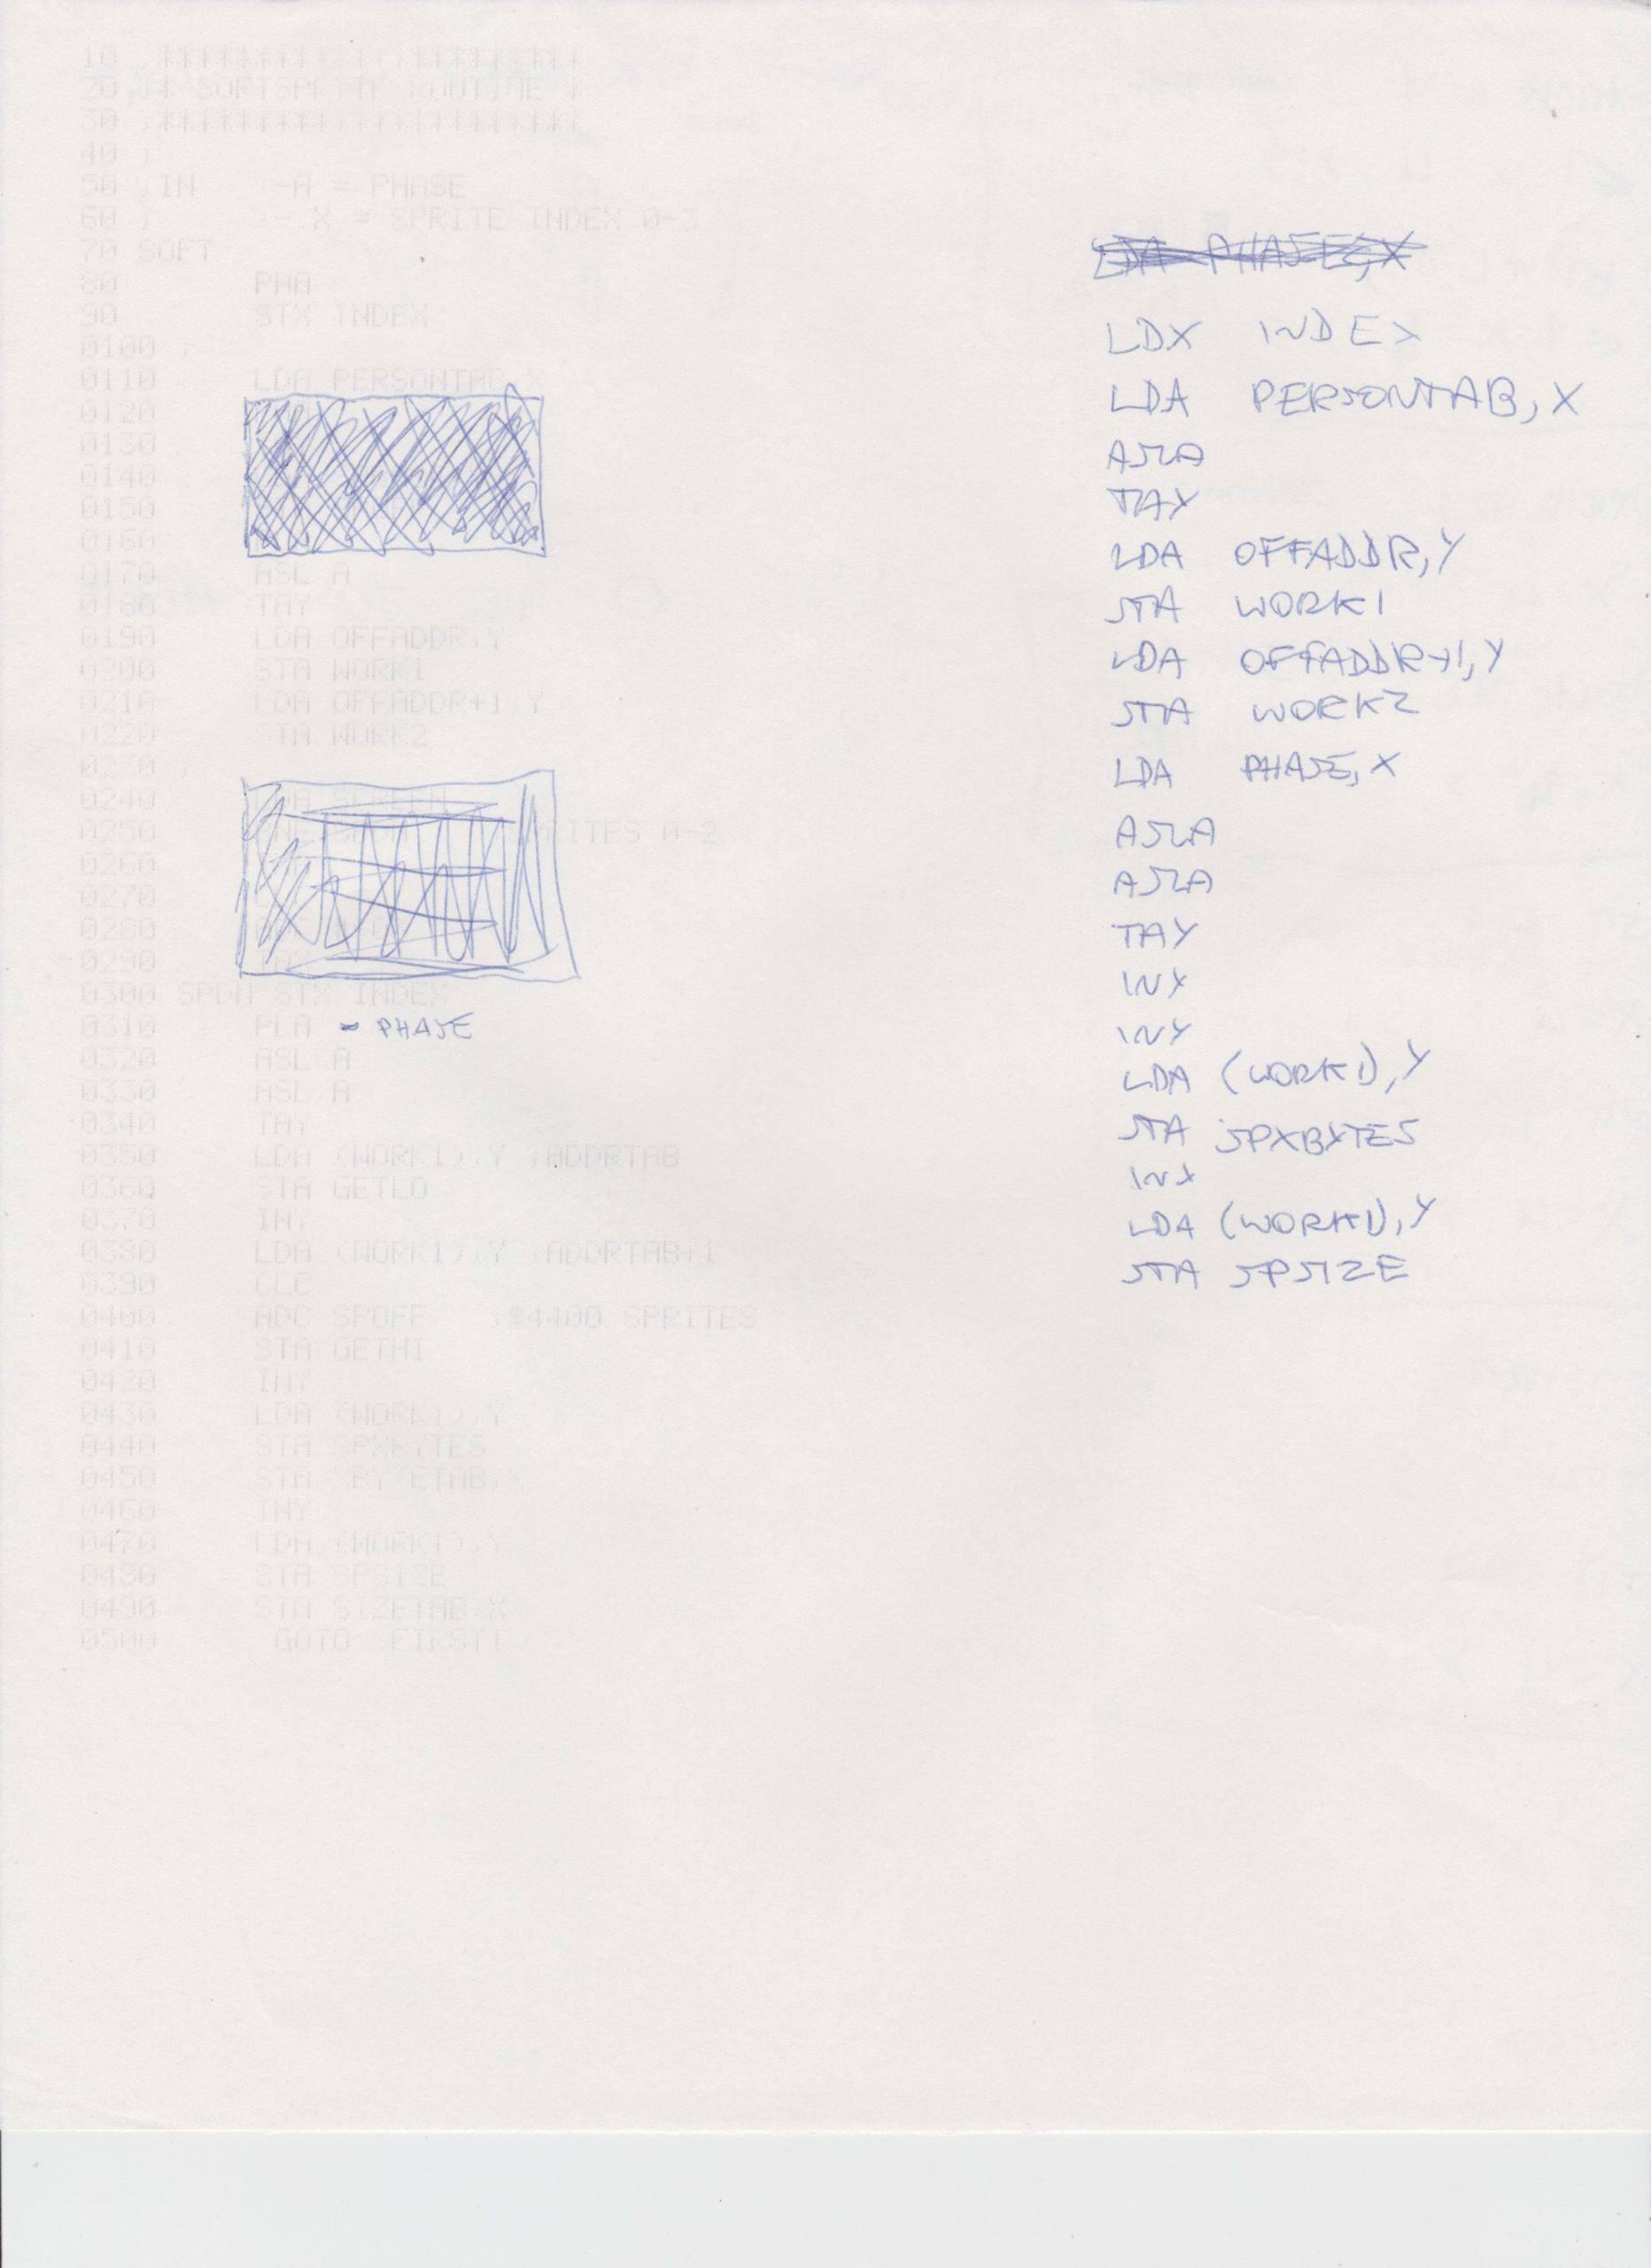 10 ;**********************
20 ;* SOFTSPRITE ROUTINE *
30 ;**********************
40 ;
50 ;IN -A = PHASE
60 ; - X = SPRITE INDEX 0-3
70 SOFT
80 PHA
90 STX INDEX
0100 ;
0110 LDA PERSONTAB,X
0120
0130
0140
0150
0160
0170 ASL A
0180 TAY
0190 LDA OFFADDR,Y
0200 STA WORK1
0210 LDA OFFADDR+1,Y
0220 STA WORK2
0230 ;
0240 LDA SCREEN
0250 SPRITES 0-2
0260
0270
0280
0290
0300 SPDH STX INDEX
0310 PLA - PHASE
0320 ASL A
0330 ASL A
0340 TAY
0350 LDA (WORK1),Y ;ADDRTAB
0360 STA GETLO
0370 INY
0380 LDA (WORK1),Y ;ADDRTAB+1
0390 CLC
0400 ADC SPOFF ;$4400 SPRITES
0410 STA GETHI
0420 INY
0430 LDA (WORK1),Y
0440 STA SPXBYTES
0450 STA XBYTETAB,X
0460 INY
0470 LDA (WORK1),Y
0480 STA SPSIZE
0490 STA SIZETAB,X
0500 GOTO FIRST1
LDA PHASE,X
LDX INDEX
LDA PERSONTAB,X
ASLA
TAY
LDA OFFADDR,Y
STA WORK1
LDA OFFADDR+1,Y
STA WORK2
LDA PHASE,X
ASLA
ASLA
TAY
INY
INY
LDA (WORK1),Y
STA SPXBYTES
INY
LDA (WORK1),Y
STA SPSIZE